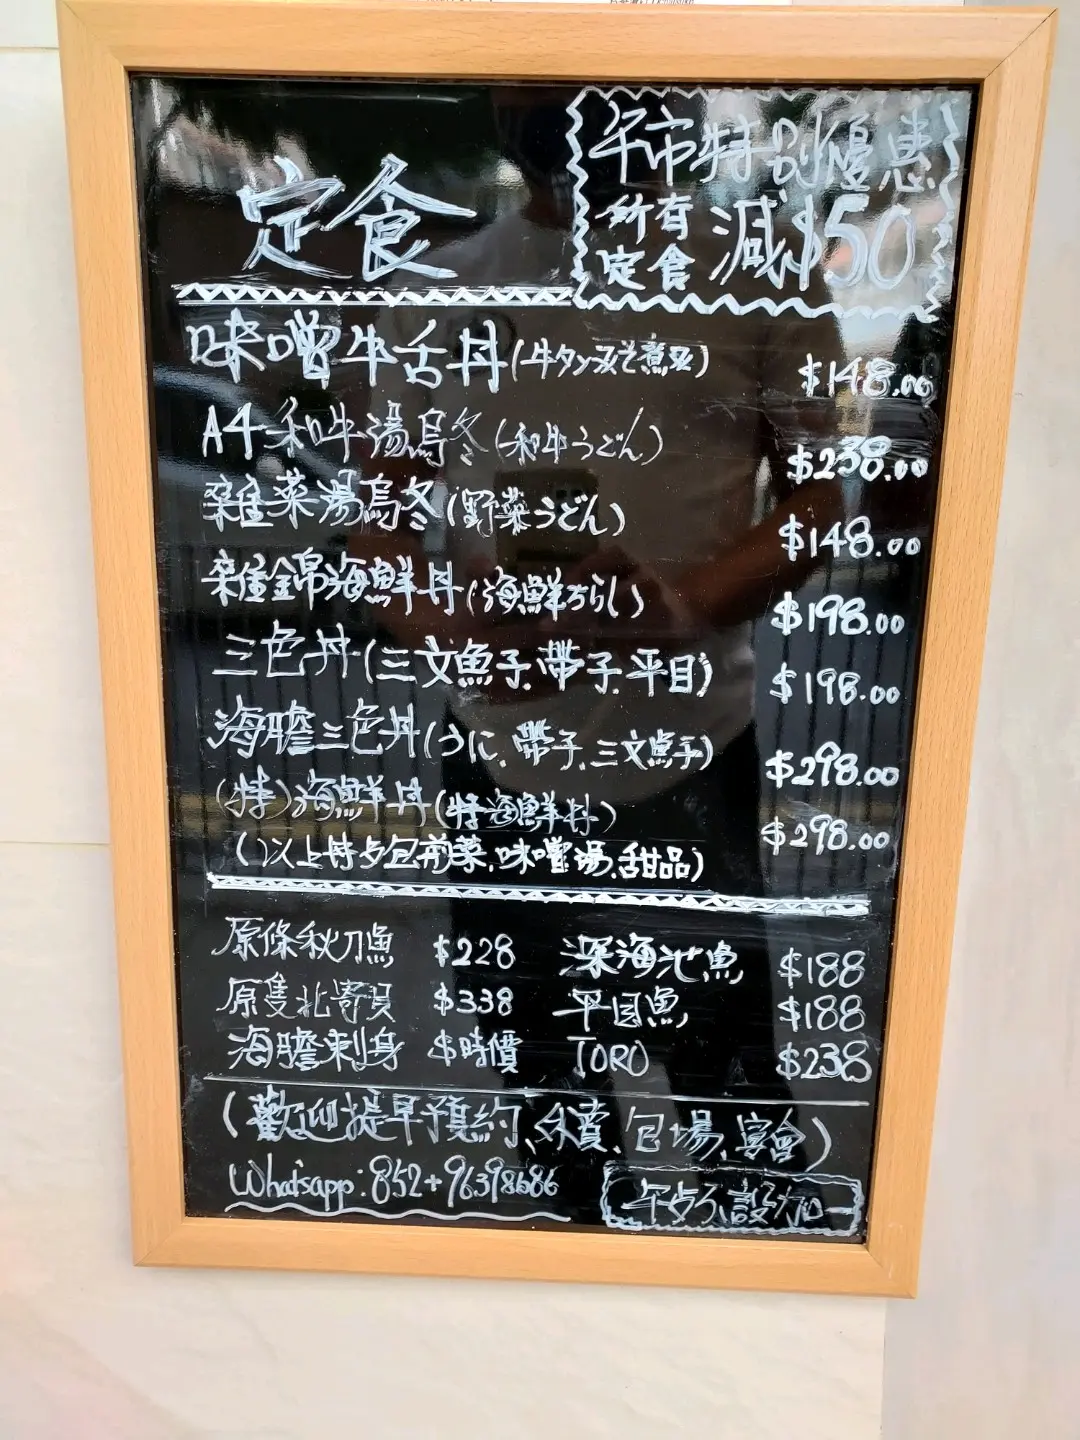 定食
午市特別優惠
所有定食減$50
味噌牛舌丼(牛タンみそ煮込) $148.00
A4和牛湯烏冬(和牛うどん) $238.00
雜菜湯烏冬(野菜うどん) $148.00
雜錦海鮮丼(海鮮ちらし) $198.00
三色丼(三文魚子.帶子.平目) $198.00
海膽三色丼(うに.帶子.三文魚子) $298.00
(特)海鮮丼(特海鮮丼) $298.00
(以上丼 包前菜.味噌湯.甜品)
原條秋刀魚 $228 深海池魚 $188
原隻北寄貝 $338 平目魚 $188
海膽刺身 $時價 TORO $238
(歡迎提早預約、外賣、包場、宴會)
Whatsapp:852+96398686
午 不設加一